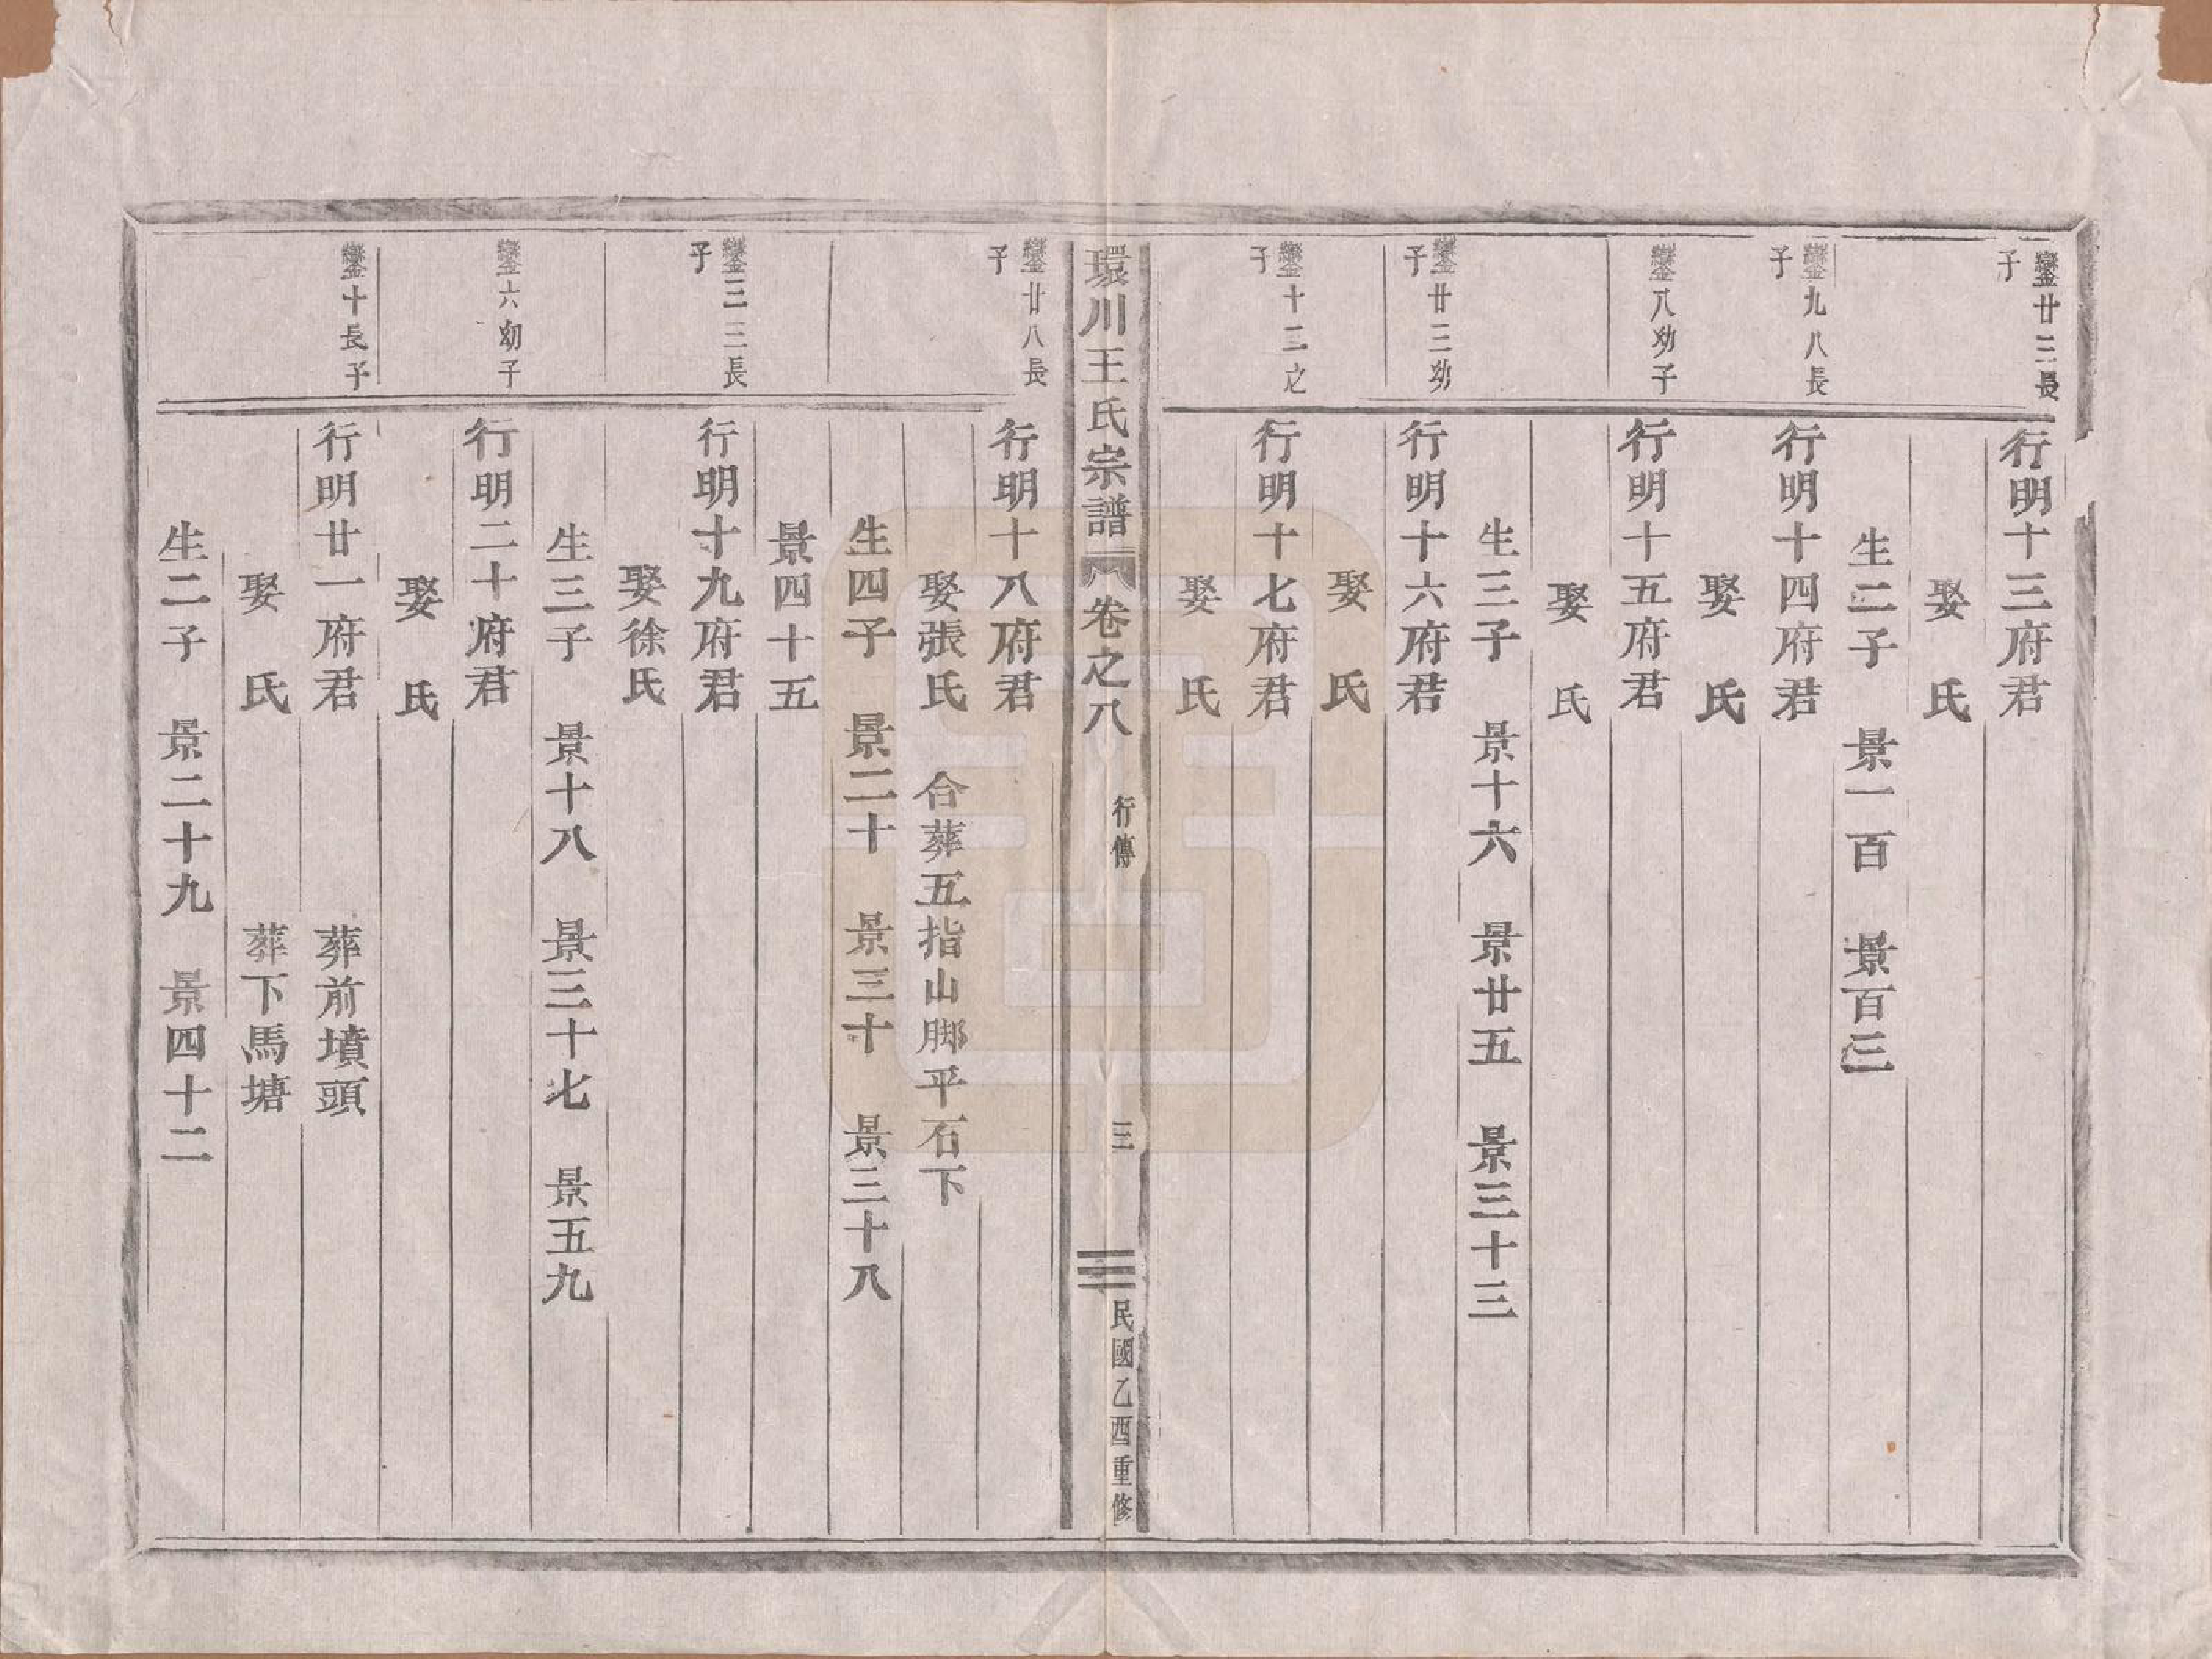 鑾廿三長
子
行明十三府君
娶　氏
生二子　景一百　景百三
鑾九八長
子
行明十四府君
娶　氏
鑾八幼子
行明十五府君
娶　氏
生三子　景十六　景廿五　景三十三
鑾廿三幼
子
行明十六府君
娶　氏
鑾十二之
子
行明十七府君
娶　氏
環川王氏宗譜　卷之八　行傳　三　民國乙酉重修
鑾廿八長
子
行明十八府君
娶張氏　合葬五指山脚平石下
生四子　景二十　景三十　景三十八
景四十五
鑾三三長
子
行明十九府君
娶徐氏
生三子　景十八　景三十七　景五九
鑾六幼子
行明二十府君
娶　氏
鑾十長子
行明廿一府君　葬前墳頭
娶　氏　葬下馬塘
生二子　景二十九　景四十二